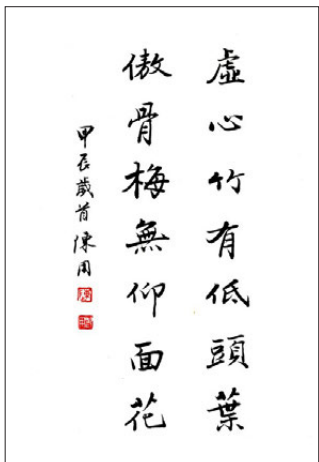 虛心竹有低頭葉
傲骨梅無仰面花
甲辰歲首陳用